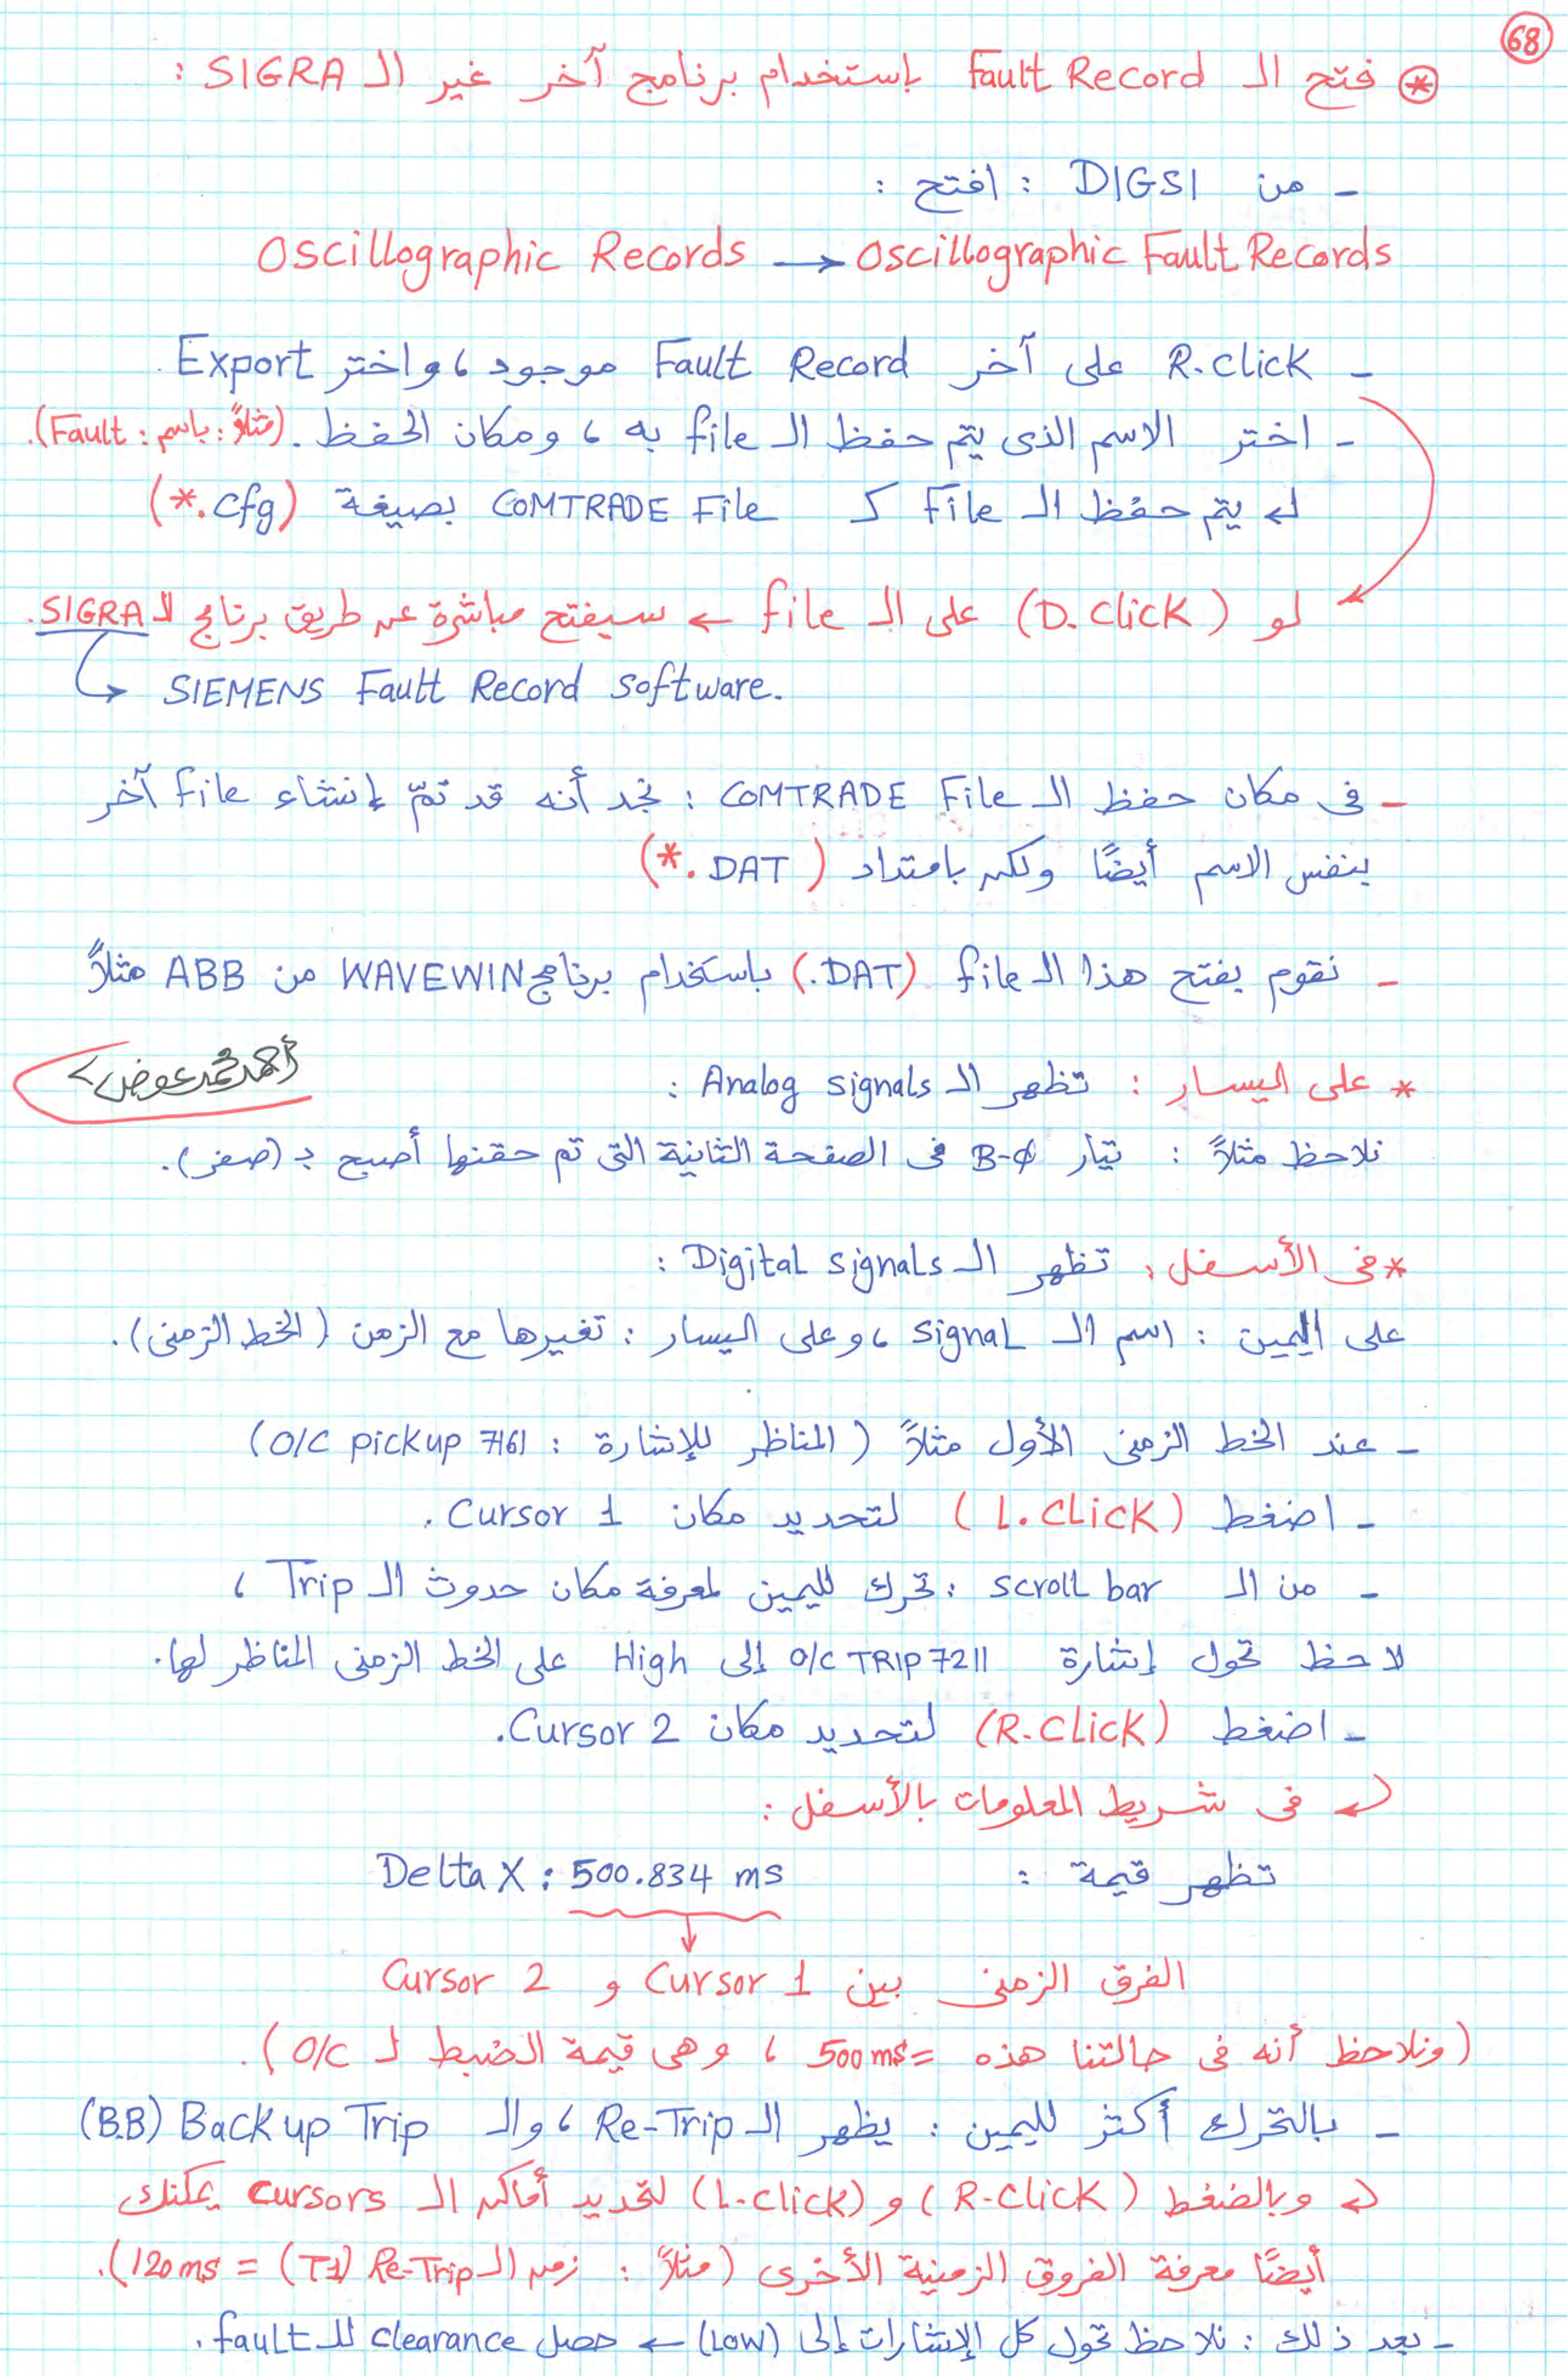 68
* فتح الـ Fault Record بإستخدام برنامج آخر غير الـ SIGRA :
- من DIGSI : افتح :
Oscillographic Records → Oscillographic Fault Records
- R.click على آخر Fault Record موجود ، واختر Export .
- اختر الاسم الذى يتم حفظ الـ file به ، ومكان الحفظ . (مثلاً : باسم : Fault).
↵ يتم حفظ الـ File كـ COMTRADE File بصيغة (*.cfg)
لو (D.click) على الـ file ← سيفتح مباشرة عن طريق برنامج الـ SIGRA.
↳ SIEMENS Fault Record software.
- فى مكان حفظ الـ COMTRADE File : نجد أنه قد تمّ إنشاء file آخر
بنفس الاسم أيضًا ولكن بامتداد (*.DAT)
- نقوم بفتح هذا الـ file (.DAT) باستخدام برنامج WAVEWIN من ABB مثلاً
أحمد محمد عوض
* على اليسار : تظهر الـ Analog signals :
نلاحظ مثلاً : تيار B-φ فى الصفحة الثانية التى تم حقنها أصبح بـ (صفر).
* فى الأسفل : تظهر الـ Digital signals :
على اليمين : اسم الـ signal ، وعلى اليسار : تغيرها مع الزمن (الخط الزمنى).
- عند الخط الزمنى الأول مثلاً (المناظر للإشارة : O/C pickup 7161)
- اضغط (L.CLick) لتحديد مكان Cursor 1 .
- من الـ scroll bar : تحرك لليمين لمعرفة مكان حدوث الـ Trip ،
لاحظ تحول إشارة O/C TRIP 7211 إلى High على الخط الزمنى المناظر لها.
- اضغط (R.Click) لتحديد مكان Cursor 2.
↵ فى شريط المعلومات بالأسفل :
تظهر قيمة : Delta X : 500.834 ms
↓
الفرق الزمنى بين Cursor 1 و Cursor 2
(ونلاحظ أنه فى حالتنا هذه = 500ms ، وهى قيمة الضبط لـ O/C).
- بالتحرك أكثر لليمين : يظهر الـ Re-Trip ، والـ Backup Trip (B.B)
↵ وبالضغط (R-Click) و (L-click) لتحديد أماكن الـ cursors يمكنك
أيضًا معرفة الفروق الزمنية الأخرى (مثلاً : زمن الـ Re-Trip (T1) = 120ms).
- بعد ذلك : نلاحظ تحول كل الإشارات إلى (Low) ← حصل clearance للـ fault .